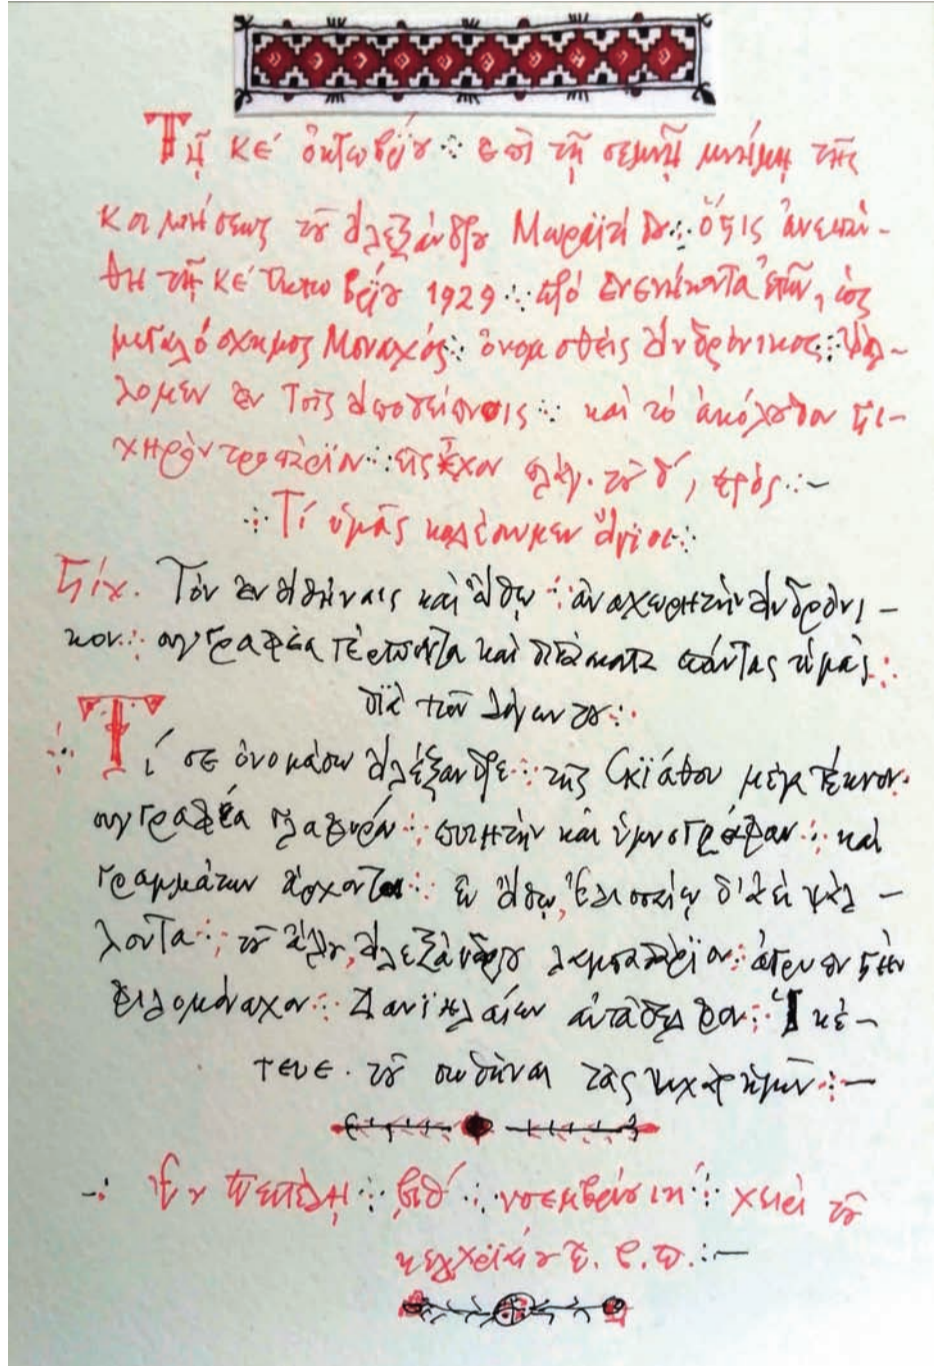 Τῇ ΚΕ´ ὀκτωβρίου ⁘ ἐπὶ τῇ σεμνῇ μνήμῃ τῆς
κοιμήσεως τοῦ Ἀλεξάνδρου Μωραϊτίδου ⁘ ὅστις ἀνεπαύ-
θη τῇ ΚΕ´ Ὀκτωβρίου 1929 ⁘ πρό ἐνενήκοντα ἐτῶν, ὡς
μεγαλόσχημος Μοναχός ⁘ ὀνομασθείς Ἀνδρόνικος ⁘ Ψάλ-
λομεν ἐν τοῖς ἀποδείπνοις ⁘ καὶ τὸ ἀκόλουθον στι-
χηρὸν τροπάριον ⁘ εἰς ἦχον πλάγ. τοῦ δ´, πρὸς ⁘ –
⁘ Τί ὑμᾶς καλέσωμεν ἅγιοι ⁘
Στίχ. Τὸν ἐν Ἀθήναις καὶ Ἄθῳ ⁘ ἀναχωρητὴν Ἀνδρόνι-
κον ⁘ συγγραφέα τέρποντα καὶ πάντας ἡμᾶς ⁘
διὰ τῶν λόγων του ⁘
⁘ Τί σε ὀνομάσω Ἀλέξανδρε ⁘ τῆς Σκιάθου μέγα τέκνον·
συγγραφέα γλαφυρόν ⁘ ποιητὴν καὶ ὑμνογράφον ⁘ καὶ
γραμμάτων ἄρχοντα ⁘ ἐν Ἄθῳ, Ἐλισσαίῳ ψάλ-
λοντα ⁘ τοῦ ἄλλου, Ἀλεξάνδρου λαμπαδάριον ⁘ ἄγρυπνον τὴν
φιλομόναχον ⁘ Δανιηλαίων αὐτάδελφον ⁘ Ἱκέ-
τευε· τοῦ σωθῆναι τὰς ψυχὰς ἡμῶν ⁘ –
⁘ Ἐν ⁘ ͵βιθ´ ⁘ νοεμβρίου ιη ⁘ χειρὶ τοῦ